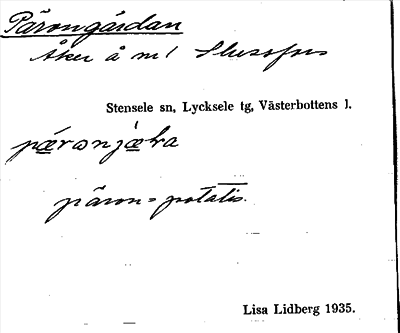 Pärongärdan
Åker å n:o 1 Slussfors
Stensele sn, Lycksele tg, Västerbottens l.
päron = potatis.
Lisa Lidberg 1935.